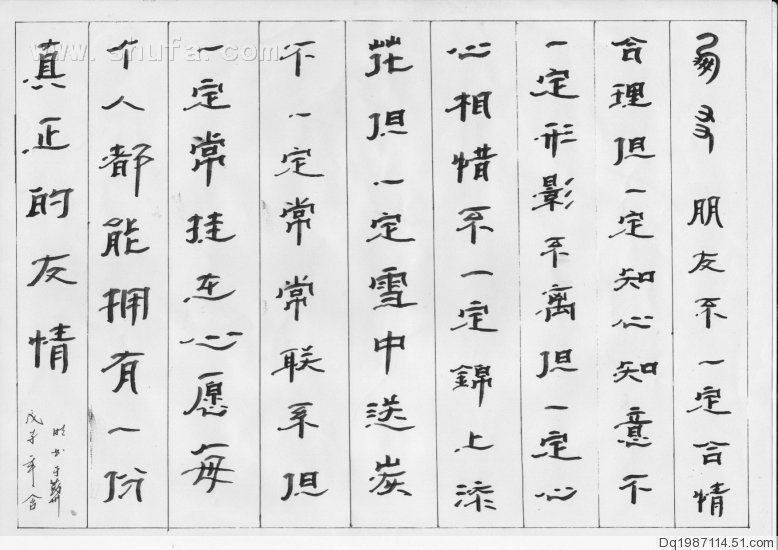 朋友不一定合情
合理但一定知心知意不
一定形影不离但一定心
心相惜不一定錦上添
花但一定雪中送炭
不一定常常联系但
一定常挂在心愿每
个人都能拥有一份
真正的友情
戊子年
www.shufa.com
Dq1987114.51.com